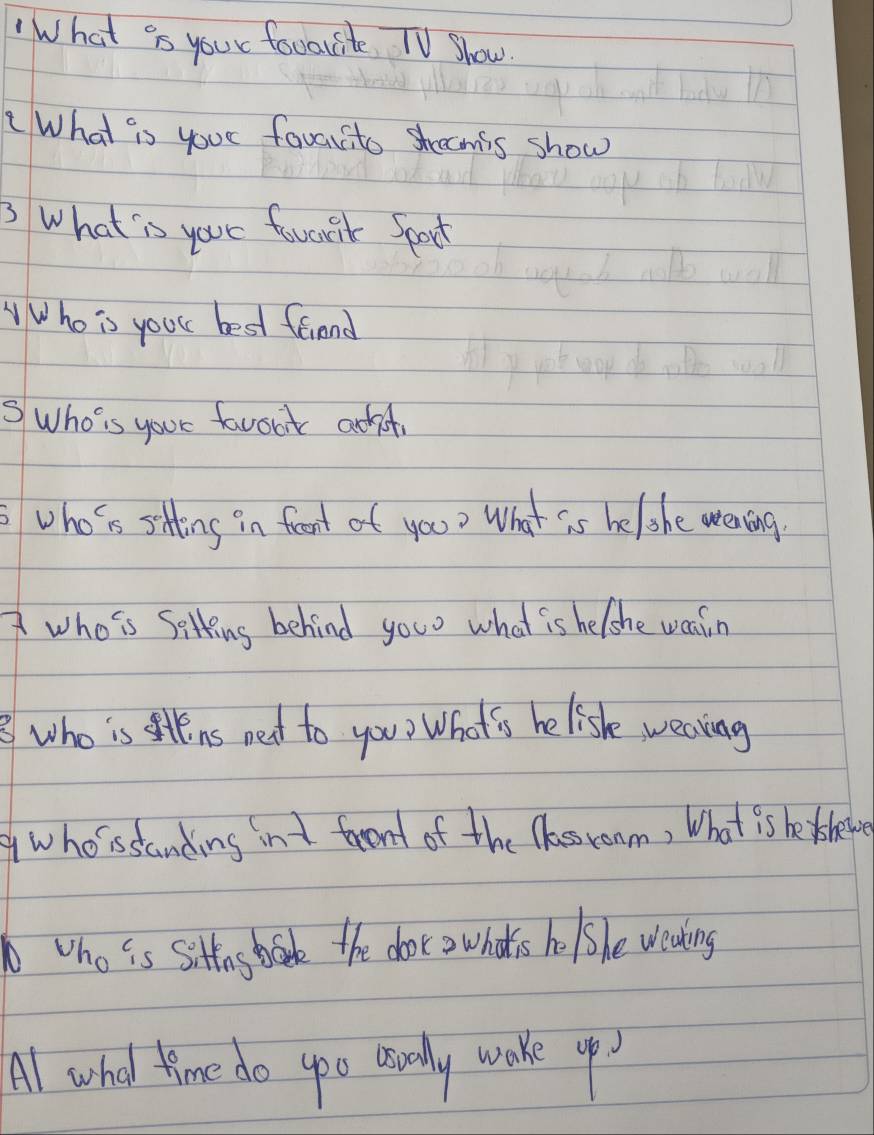 1 What is your favarite TV Show.
2 What is your favarito streamis show
3 What is your favarite Sport
4 Who is your best friend
5 Who is your favorite artist.
6 who is sitting in front of you? What is he/she wearing.
7 who is Sitting behind you? what is he/she wearin
8 Who is next to you? What is he/she wearing
9 who is standing in front of the Classroom, What is he/she we
10 who is Sitting the door? what is he/she wearing
Al what time do you usually wake up?